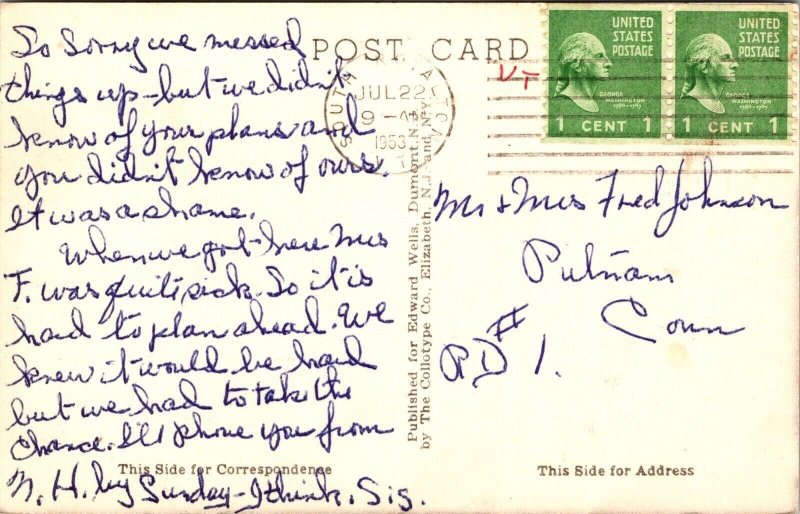 So sorry we messed
things up - but we didn't
know of your plans and
you didn't know of ours.
It was a shame.
When we got here Mrs
F. was quite sick. So it is
hard to plan ahead. We
knew it would be hard
but we had to take the
chance. I'll phone you from
N. H. by Sunday - I think. Sig.
This Side for Correspondence
POST CARD
VT
SOUTH
JUL 22
9 - AM
1953
Published for Edward Wells, Dumont, N.J.
by The Collotype Co., Elizabeth, N.J. and N.Y.
UNITED
STATES
POSTAGE
GEORGE
WASHINGTON
1789-1797
1 CENT 1
UNITED
STATES
POSTAGE
GEORGE
WASHINGTON
1789-1797
1 CENT 1
Mr & Mrs Fred Johnson
Putnam
Conn
RD # 1.
This Side for Address